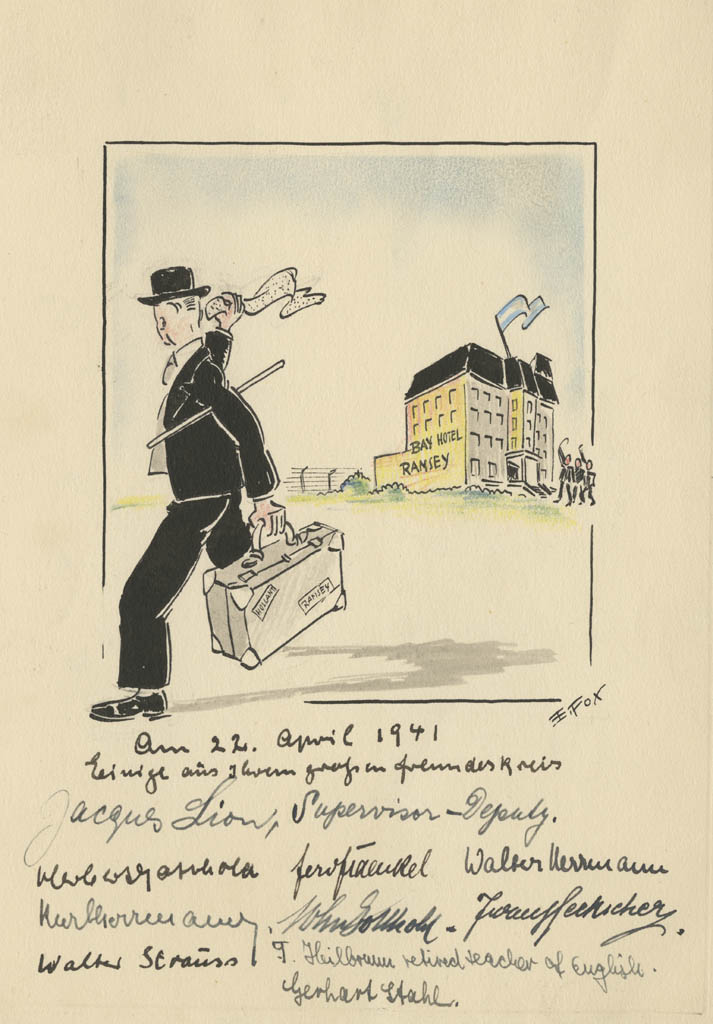 BAY HOTEL
RAMSEY
HOLLAND
RAMSEY
E. FOX
Am 22. April 1941
Einige aus Ihrem großen Freundeskreis
Jacques Lion, Supervisor-Deputy.
Walter Herrmann
Kurt
Walter Strauss F. Heilbrunn retired teacher of English.
Gerhart Stahl.